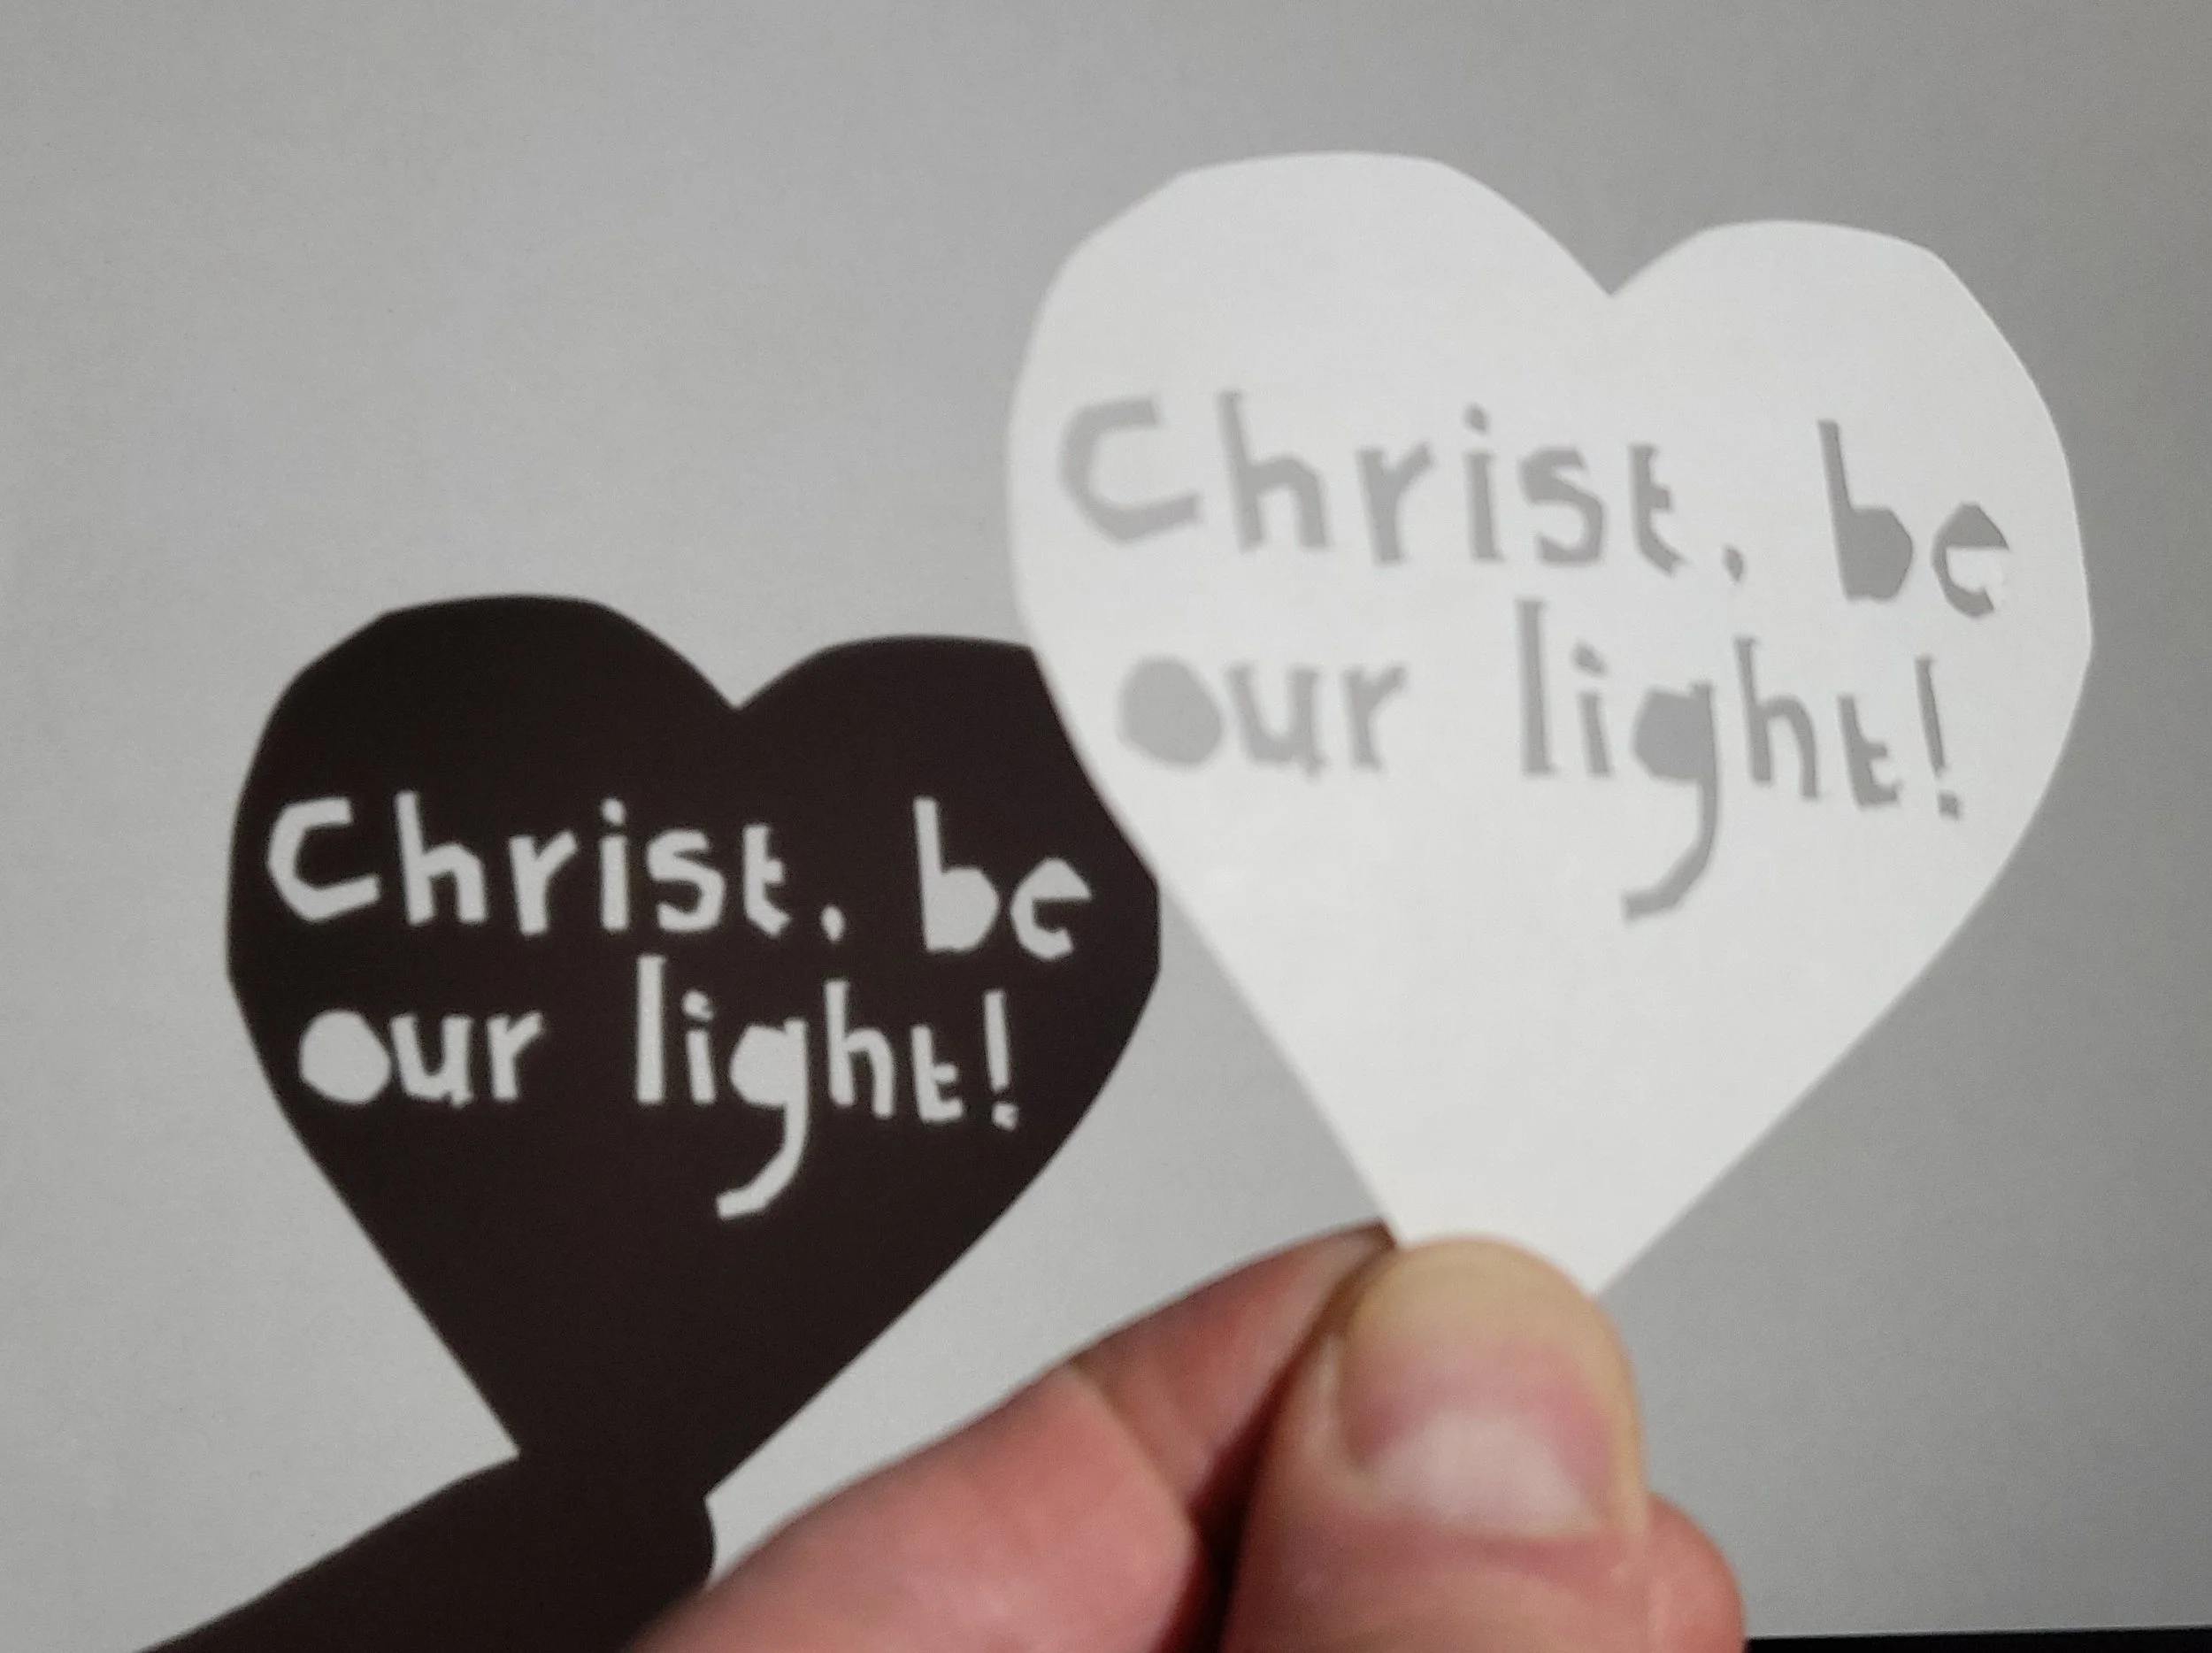 Christ, be
our light!
Christ, be
our light!